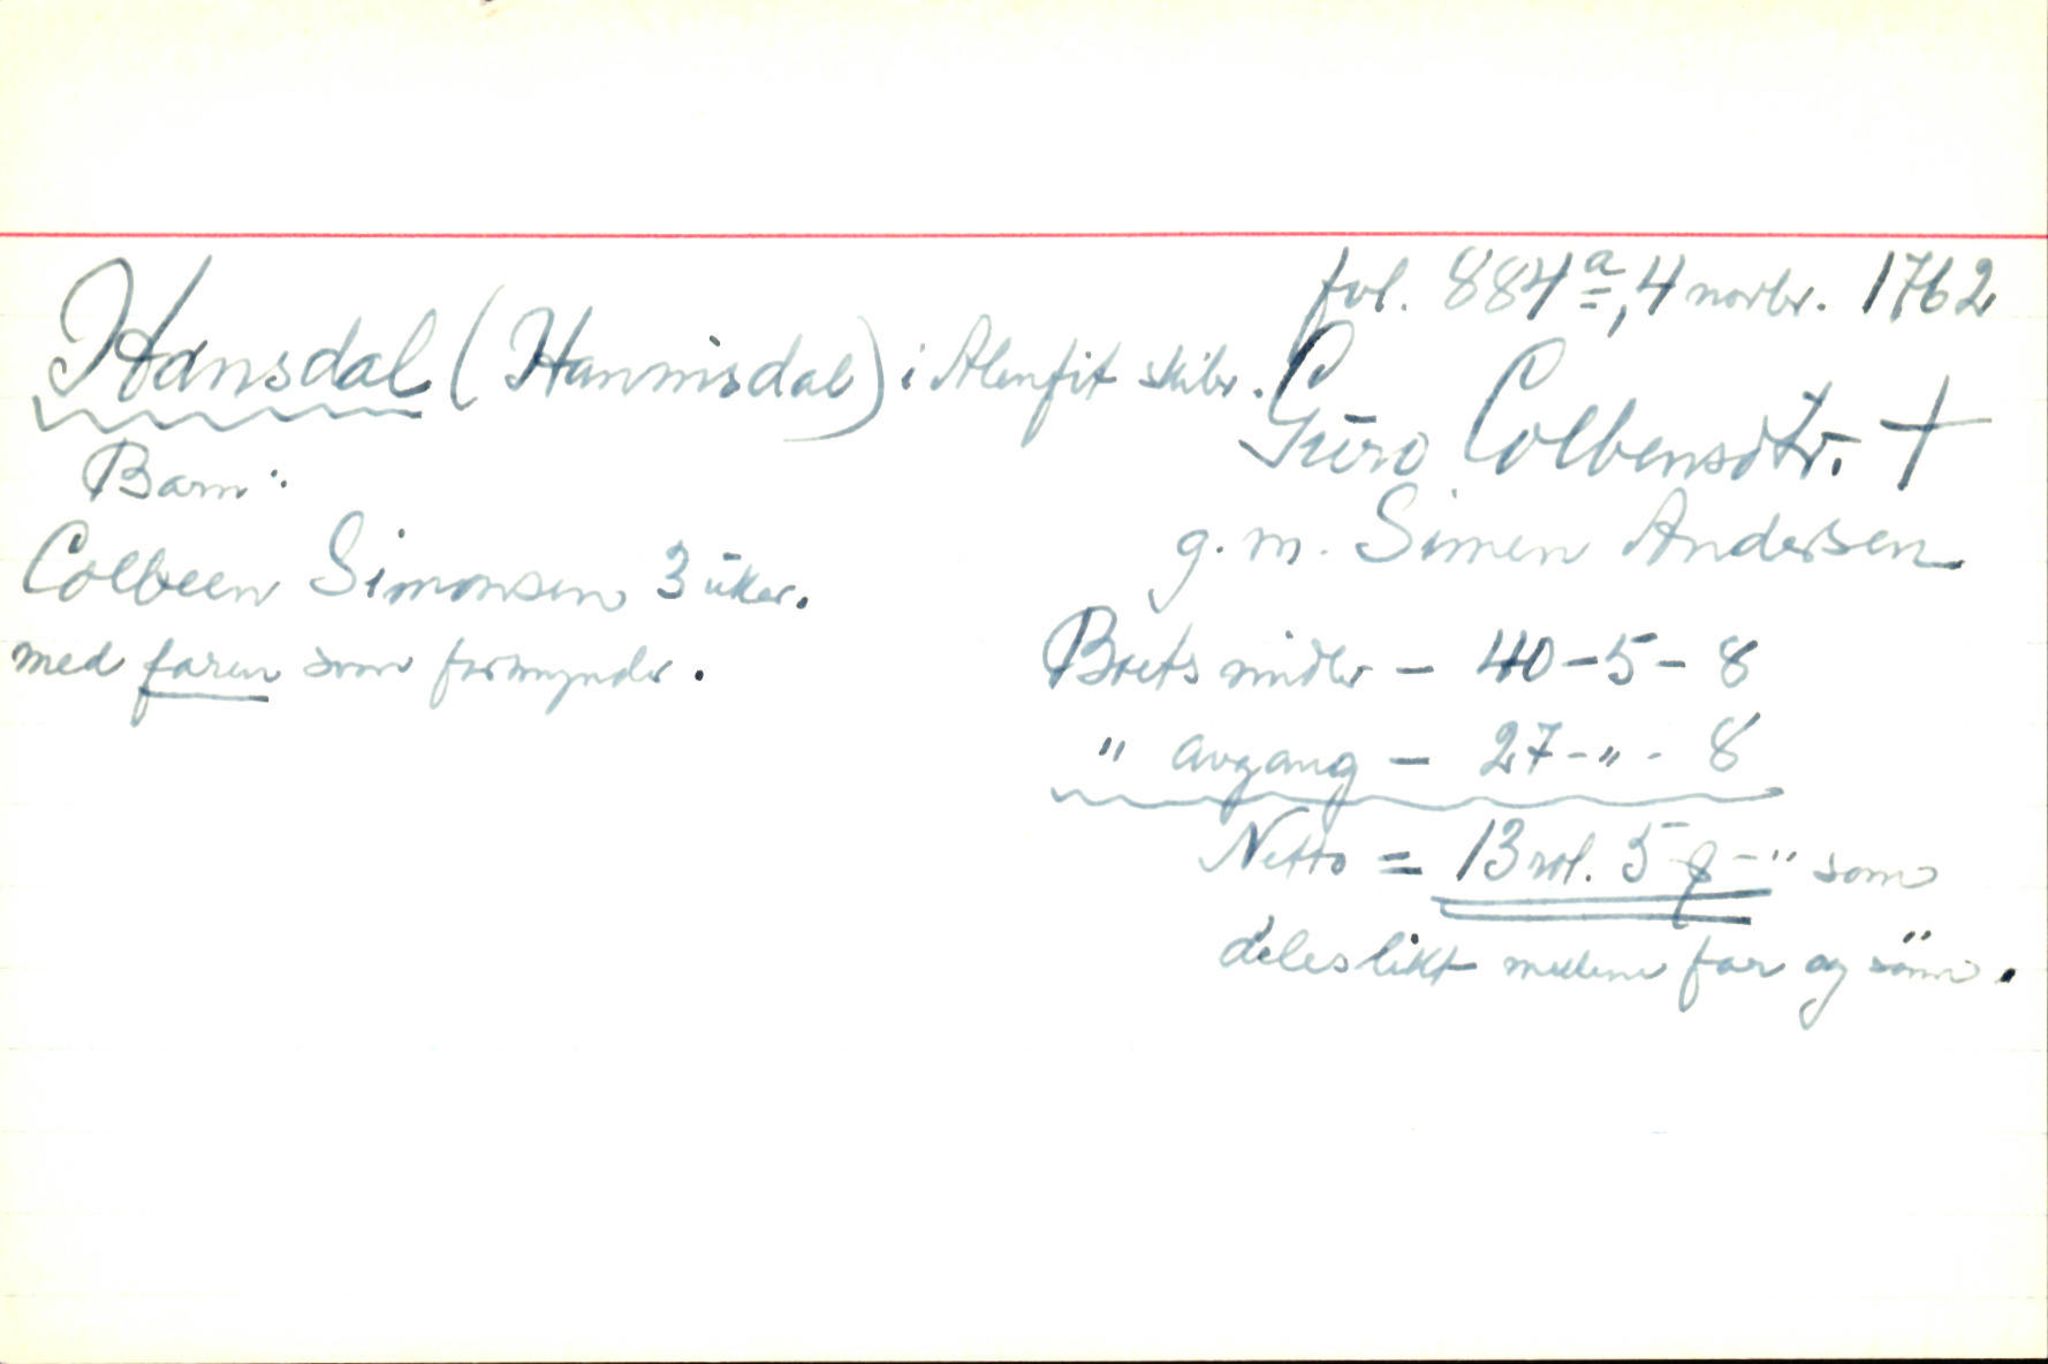 fol. 884a, 4 novbr. 1762
Hansdal (Hannisdal) i Alenfit skibr. Guro Colbensdtr. †
Barn:
Colbeen Simonsen 3 uker.
med faren som formynder.
g. m. Simen Andersen
Boets midler – 40–5–8
" avgang – 27-"- 8
Netto = 13 rdl. 5 –" som
deles likt mellem far og sönn.